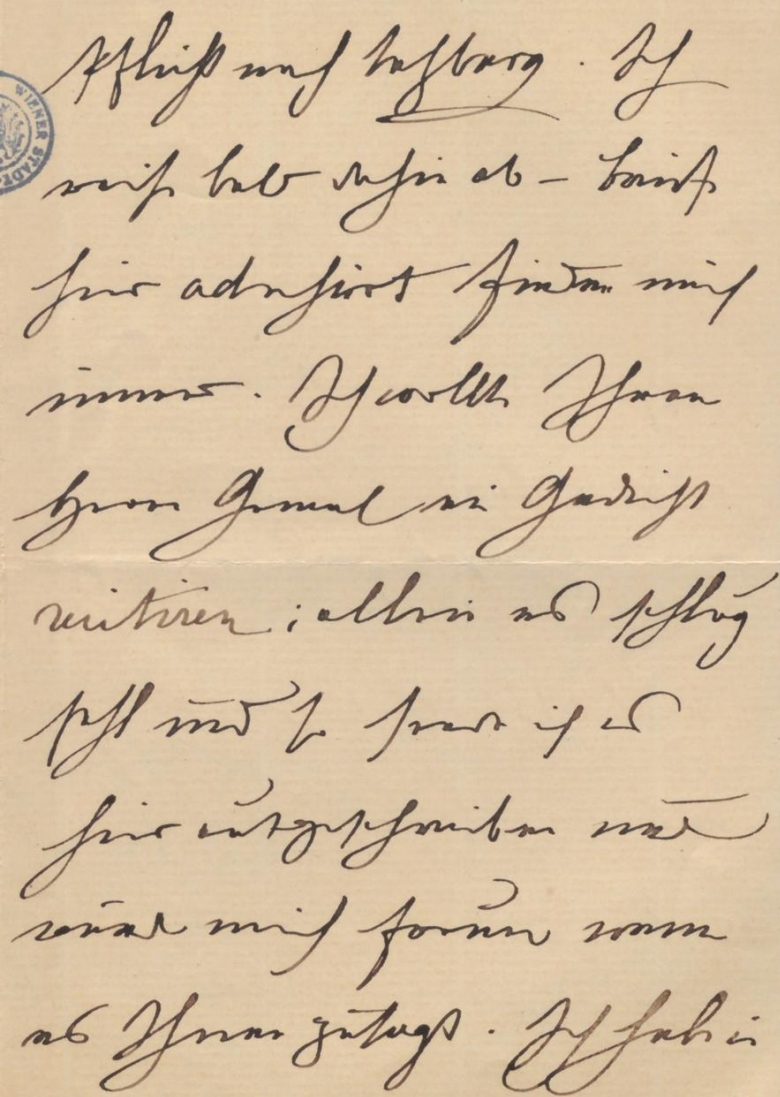 WIENER STADT
Pflicht nach Salzburg. Ich
reise bald dahin ab – Briefe
hier adressirt finden mich
immer. Ich wollte Ihrem
Herrn Gemal ein Gedicht
recitiren; allein es schlug
fehl und so sende ich es
hier aufgeschrieben und
würde mich freuen wenn
es Ihnen zusagt. Ich habe